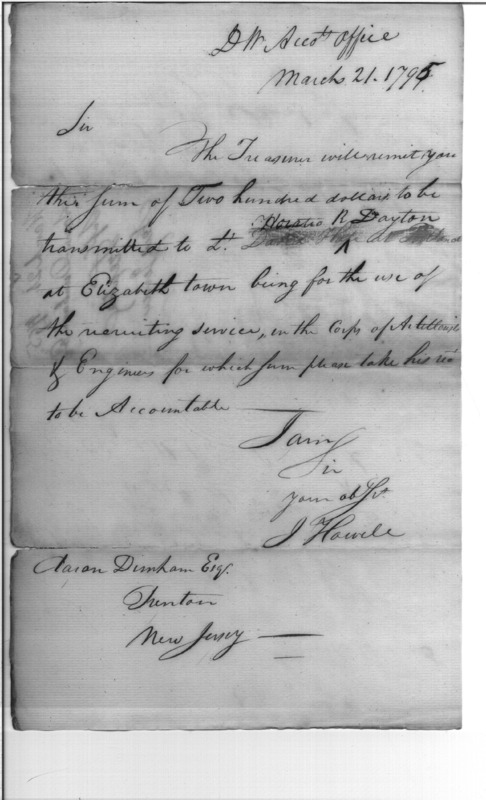 DW Accots office
March 21. 1795.
Sir
The Treasurer will remit you
this sum of Two hundred dollars to be
Horatio R Dayton
transmitted to Lt.
at Elizabeth town being for the use of
the recruiting service, in the Corps of Artillerists
& Engineers for which sum please take his rect
to be Accountable
I am
Sir
your ob Svt
J Howell
Aaron Dunham Esqr.
Trenton
New Jersey